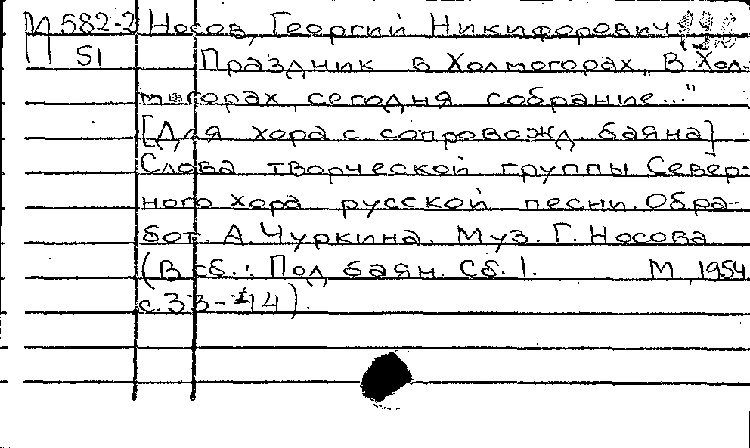 М582-2 Носов, Георгий Никифорович
51 Праздник в Холмогорах. „В Хол-
могорах сегодня собрание..."
[Для хора с сопровожд. баяна]
Слова творческой группы Север-
ного хора русской песни. Обра-
бот. А. Чуркина. Муз. Г. Носова
(В сб.: Под баян. Сб. 1. М, 1954
с. 33-44).